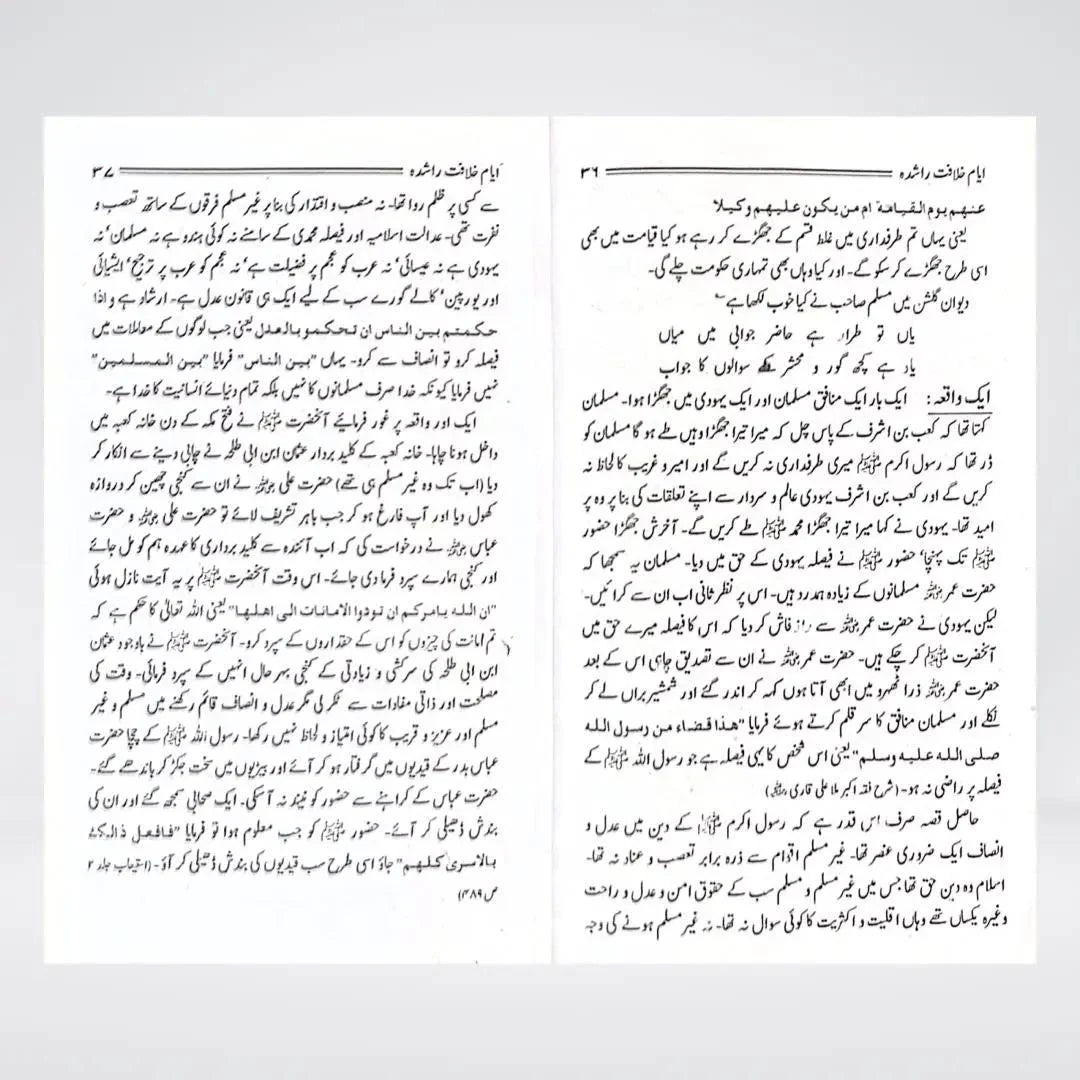 ایام خلافت راشدہ ۳۶
عنہم یوم القیامۃ ام من یکون علیہم وکیلا
یعنی یہاں تم طرفداری میں غلط قسم کے جھگڑے کر رہے ہو کیا قیامت میں بھی
اسی طرح جھگڑے کر سکو گے۔ اور کیا وہاں بھی تمہاری حکومت چلے گی۔
دیوان گلشن میں مسلم صاحب نے کیا خوب لکھا ہے
یاں تو طرار ہے حاضر جوابی میں میاں
یاد ہے کچھ گور و محشر کے سوالوں کا جواب
ایک واقعہ: ایک بار ایک منافق مسلمان اور ایک یہودی میں جھگڑا ہوا۔ مسلمان
کہتا تھا کہ کعب بن اشرف کے پاس چل کہ میرا تیرا جھگڑا وہیں طے ہو گا مسلمان کو
ڈر تھا کہ رسول اکرم ﷺ میری طرفداری نہ کریں گے اور امیر و غریب کا لحاظ نہ
کریں گے اور کعب بن اشرف یہودی عالم و سردار سے اپنے تعلقات کی بنا پر وہ پر
امید تھا۔ یہودی نے کہا میرا تیرا جھگڑا محمد ﷺ طے کریں گے۔ آخرش جھگڑا حضور
ﷺ تک پہنچا‘ حضور ﷺ نے فیصلہ یہودی کے حق میں دیا۔ مسلمان یہ سمجھا کہ
حضرت عمر رضی اللہ عنہ مسلمانوں کے زیادہ ہمدرد ہیں۔ اس پر نظر ثانی اب ان سے کرائیں۔
لیکن یہودی نے حضرت عمر رضی اللہ عنہ سے راز فاش کر دیا کہ اس کا فیصلہ میرے حق میں
آنحضرت ﷺ کر چکے ہیں۔ حضرت عمر رضی اللہ عنہ نے ان سے تصدیق چاہی اس کے بعد
حضرت عمر رضی اللہ عنہ ذرا ٹھہرو میں ابھی آتا ہوں کہہ کر اندر گئے اور شمشیر براں لے کر
نکلے اور مسلمان منافق کا سر قلم کرتے ہوئے فرمایا "ھذا قضاء من رسول اللہ
صلی اللہ علیہ وسلم" یعنی اس شخص کا یہی فیصلہ ہے جو رسول اللہ ﷺ کے
فیصلہ پر راضی نہ ہو۔ (شرح فقہ اکبر ملا علی قاری)
حاصل قصہ صرف اس قدر ہے کہ رسول اکرم ﷺ کے دین میں عدل و
انصاف ایک ضروری عنصر تھا۔ غیر مسلم اقوام سے ذرہ برابر تعصب و عناد نہ تھا۔
اسلام وہ دین حق تھا جس میں غیر مسلم و مسلم سب کے حقوق امن و عدل و راحت
وغیرہ یکساں تھے وہاں اقلیت و اکثریت کا کوئی سوال نہ تھا۔ نہ غیر مسلم ہونے کی وجہ
ایام خلافت راشدہ ۳۷
سے کسی پر ظلم روا تھا۔ نہ منصب و اقتدار کی بنا پر غیر مسلم فرقوں کے ساتھ تعصب و
نفرت تھی۔ عدالت اسلامیہ اور فیصلہ محمدی کے سامنے نہ کوئی ہندو ہے نہ مسلمان‘ نہ
یہودی ہے نہ عیسائی‘ نہ عرب کو عجم پر فضیلت ہے‘ نہ عجم کو عرب پر ترجیح‘ ایشیائی
اور یورپین‘ کالے گورے سب کے لیے ایک ہی قانون عدل ہے۔ ارشاد ہے و اذا
حکمتم بین الناس ان تحکمو بالعدل یعنی جب لوگوں کے معاملات میں
فیصلہ کرو تو انصاف سے کرو۔ یہاں "بین الناس" فرمایا "بین المسلمین"
نہیں فرمایا کیونکہ خدا صرف مسلمانوں کا نہیں بلکہ تمام دنیائے انسانیت کا خدا ہے۔
ایک اور واقعہ پر غور فرمائیے آنحضرت ﷺ نے فتح مکہ کے دن خانہ کعبہ میں
داخل ہونا چاہا۔ خانہ کعبہ کے کلید بردار عثمان ابن ابی طلحہ نے چابی دینے سے انکار کر
دیا (اب تک وہ غیر مسلم ہی تھے) حضرت علی رضی اللہ عنہ نے ان سے کنجی چھین کر دروازہ
کھول دیا اور آپ فارغ ہو کر جب باہر تشریف لائے تو حضرت علی رضی اللہ عنہ و حضرت
عباس رضی اللہ عنہ نے درخواست کی کہ اب آئندہ سے کلید برداری کا عہدہ ہم کو مل جائے
اور کنجی ہمارے سپرد فرما دی جائے۔ اس وقت آنحضرت ﷺ پر یہ آیت نازل ہوئی
"ان اللہ یامرکم ان تودوا الامانات الی اھلھا" یعنی اللہ تعالیٰ کا حکم ہے کہ
تم امانت کی چیزوں کو اس کے حقداروں کے سپرد کرو۔ آنحضرت ﷺ نے باوجود عثمان
ابن ابی طلحہ کی سرکشی و زیادتی کے کنجی بہر حال انہیں کے سپرد فرمائی۔ وقت کی
مصلحت اور ذاتی مفادات سے ٹکر لی مگر عدل و انصاف قائم رکھنے میں مسلم و غیر
مسلم اور عزیز و قریب کا کوئی امتیاز و لحاظ نہیں رکھا۔ رسول اللہ ﷺ کے چچا حضرت
عباس بدر کے قیدیوں میں گرفتار ہو کر آئے اور بیڑیوں میں سخت جکڑ کر باندھے گئے۔
حضرت عباس کے کراہنے سے حضور کو نیند نہ آ سکی۔ ایک صحابی سمجھ گئے اور ان کی
بندش ڈھیلی کر آئے۔ حضور ﷺ کو جب معلوم ہوا تو فرمایا "فافعل ذالک
بالاسری کلھم" جاؤ اسی طرح سب قیدیوں کی بندش ڈھیلی کر آؤ۔ (استیعاب جلد ۲
ص ۴۸۹)